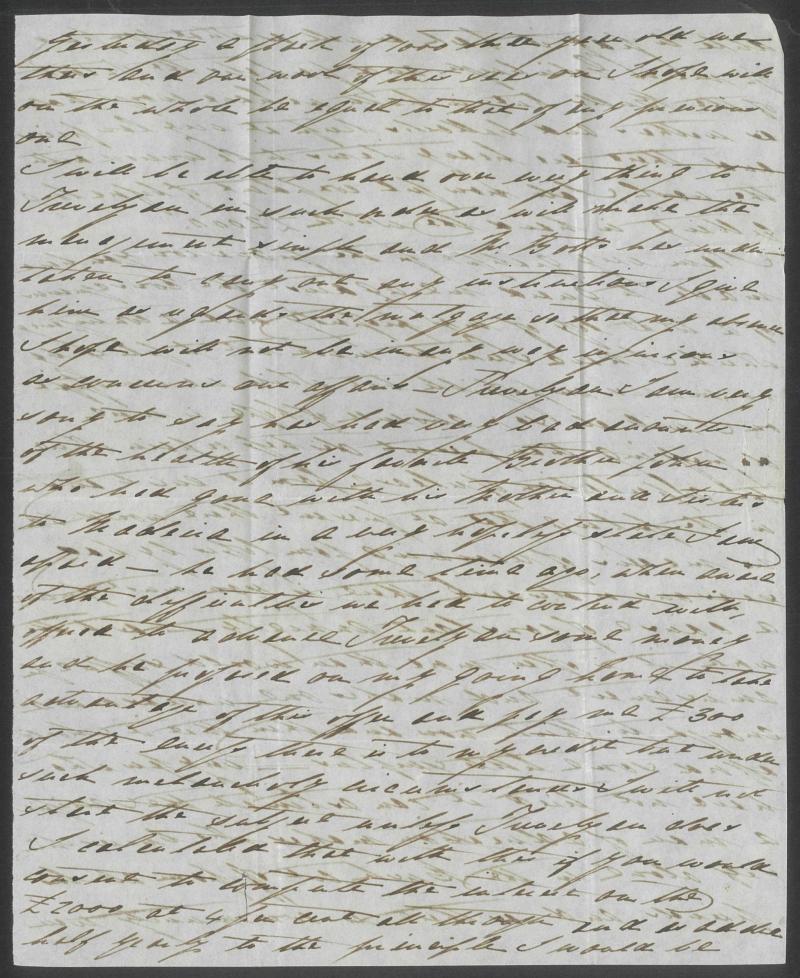 Yesterday a flock of 1000 three year old we
thus and our wool of this year we I hope will
on the whole be equal to that of my previous
one
I will be able to hand over every thing to
Trevelyan in such order as will make the
management simple and Mr Botts has under
taken to carry out any instructions I give
him as regards the mortgage so that my absence
I hope will not be in any way injurious
as concerns our affairs — Trevelyan I am very
sorry to say has had very bad accounts
of the health of his favorite Brother John
who had gone with his Mother and Sisters
to Madeira in a very hopeless state I am
afraid — he had some time ago, when aware
of the difficulties we had to contend with,
offered to advance Trevelyan some money
and he proposed on my going home to take
advantage of this offer and pay me £300
of the energy there is to my credit but under
such melancholy circumstances I will not
start the subject unless Trevelyan does
I calculated that with this if you would
consent to compute the interest on the
£2000 at 4 per cent all through and as added
half yearly to the principle I would be